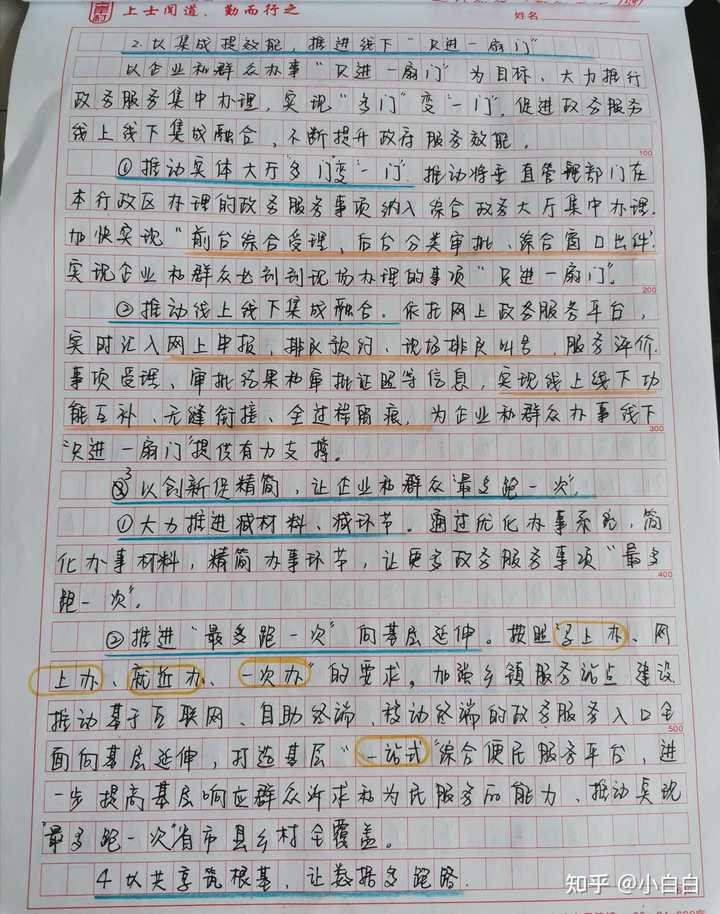 上士闻道,勤而行之
姓名
2.以集成提效能,推进线下"只进一扇门"
以企业和群众办事"只进一扇门"为目标、大力推行
政务服务集中办理,实现"多门"变"一门",促进政务服务
线上线下集成融合,不断提升政府服务效能。
①推动实体大厅"多门"变"一门"。推动将垂直管理部门在
本行政区办理的政务服务事项纳入综合政务大厅集中办理.
加快实现"前台综合受理、后台分类审批、综合窗口出件".
实现企业和群众必到现场办理的事项"只进一扇门"。
100
200
②推动线上线下集成融合。依托网上政务服务平台,
实时汇入网上申报、排队预约、现场排队叫号、服务评价、
事项受理、审批结果和审批证照等信息,实现线上线下功
能互补、无缝衔接、全过程留痕,为企业和群众办事线下
300
"只进一扇门"提供有力支撑。
3以创新促精简,让企业和群众"最多跑一次"
①大力推进减材料、减环节。通过优化办事系统,简
化办事材料,精简办事环节,让更多政务服务事项"最多
400
跑一次"。
②推进"最多跑一次"向基层延伸。按照"马上办、网
上办、就近办、一次办"的要求,加强乡镇服务站点建设
推动基于互联网、自助终端、移动终端的政务服务入口全
500
面向基层延伸,打造基层"一站式"综合便民服务平台,进
一步提高基层响应群众诉求和为民服务的能力、推动实现
"最多跑一次"省市县乡村全覆盖。
4以共享筑根基,让数据多跑路.
知乎 @小白白